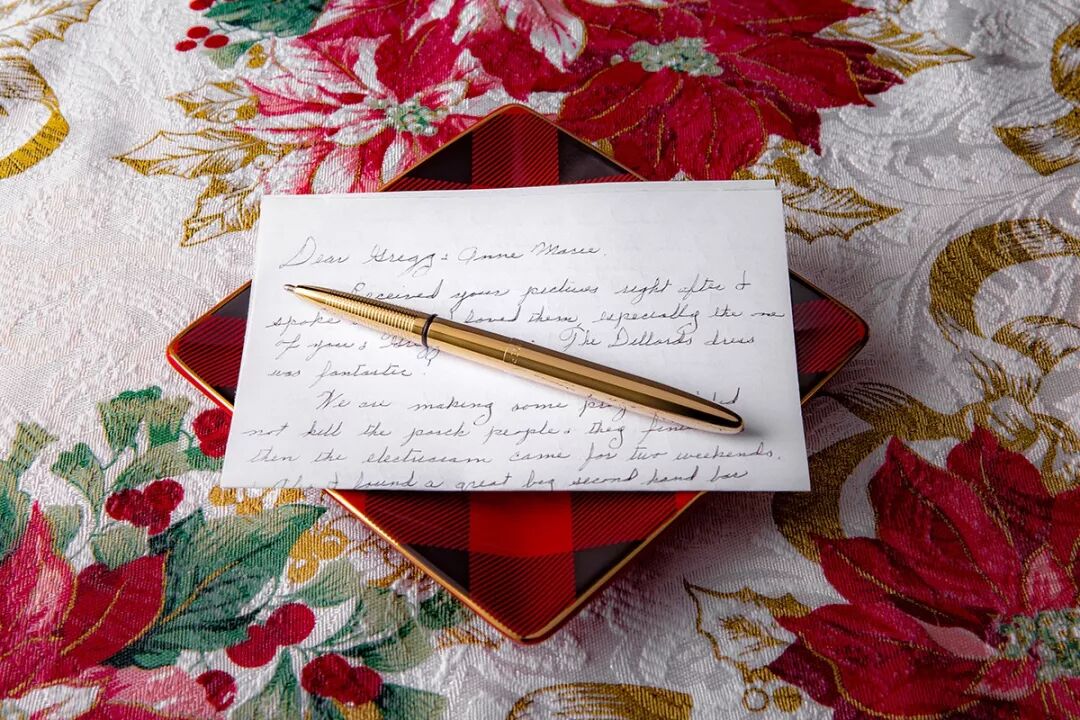 Dear Gregg & Anne Marie,
Received your pictures right after I
spoke loved them, especially the one
of you & The Dillards dress
was fantastic!
We are making some
not kill the porch people & they
then the electrician came for two weekends.
I found a great big second hand bar